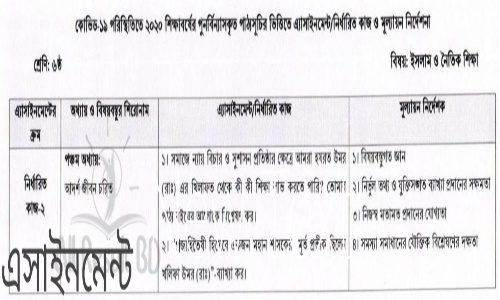 কোভিড-১৯ পরিস্থিতিতে ২০২০ শিক্ষাবর্ষের পুনর্বিন্যাসকৃত পাঠ্যসূচির ভিত্তিতে এ্যাসাইনমেন্ট/নির্ধারিত কাজ ও মূল্যায়ন নির্দেশনা
শ্রেণি: ৬ষ্ঠ
বিষয়: ইসলাম ও নৈতিক শিক্ষা
এ্যাসাইনমেন্টের ক্রম
অধ্যায় ও বিষয়বস্তুর শিরোনাম
এ্যাসাইনমেন্ট/নির্ধারিত কাজ
মূল্যায়ন নির্দেশক
নির্ধারিত
কাজ-২
পঞ্চম অধ্যায়:
আদর্শ জীবন চরিত
১। সমাজে ন্যায় বিচার ও সুশাসন প্রতিষ্ঠার ক্ষেত্রে আমরা হযরত উমর
(রাঃ) এর খিলাফত থেকে কী কী শিক্ষা লাভ করতে পারি? তোমার
কর।
২। মহান মূর্ত প্রতীক ছিলেন
খলিফা উমর (রাঃ)"-ব্যাখ্যা কর।
১। বিষয়বস্তুগত জ্ঞান
২। নির্ভুল তথ্য ও যুক্তিসঙ্গত ব্যাখ্যা প্রদানের সক্ষমতা
৩। নিজস্ব মতামত প্রদানের যোগ্যতা
৪। সমস্যা সমাধানের যৌক্তিক বিশ্লেষণের দক্ষতা
এসাইনমেন্ট